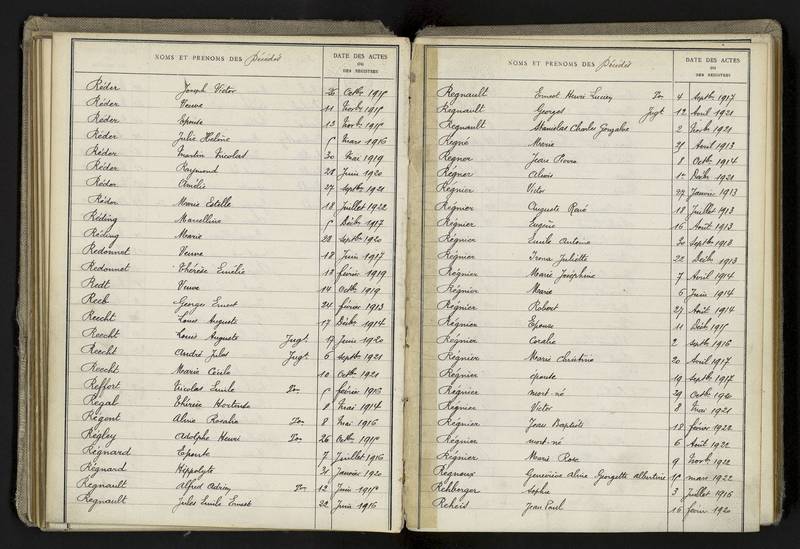 NOMS ET PRENOMS DES Décédés DATE DES ACTES
OU
DES REGISTRES
Réder Joseph Victor 26 Octbre 1915
Réder Veuve 11 Novbre 1915
Réder Epouse 13 Novbre 1915
Réder Julie Helène 5 Mars 1916
Réder Martin Nicolas 30 Mai 1919
Réder Raymond 28 Juin 1920
Réder Amélie 27 Septbre 1921
Réder Marie Estelle 18 Juillet 1922
Réding Marcelline 5 Décbre 1917
Réding Marie 28 Septbre 1920
Redonnet Veuve 18 Juin 1917
Redonnet Thérèse Emélie 13 février 1919
Redt Veuve 14 Octbre 1919
Reeb Georges Ernest 24 février 1913
Reecht Louis Auguste 17 Décbre 1914
Reecht Louis Auguste Jugt. 17 Juin 1920
Reecht André Jules Jugt. 6 Septbre 1921
Reecht Marie Cécile 10 Octbre 1921
Reffort Nicolas Emile Ton 5 février 1916
Régal Thérèse Hortense 8 Mai 1914
Régent Aline Rosalie Ton 8 Mai 1916
Régley Adolphe Henri Ton 26 Octbre 1915
Régnard Epouse 7 Juillet 1916
Régnard Hippolyte 31 Janvier 1920
Regnault Alfred Adrien Ton 12 Juin 1915
Regnault Jules Emile Ernest 22 Juin 1916
NOMS ET PRENOMS DES Décédés DATE DES ACTES
OU
DES REGISTRES
Regnault Ernest Henri Lucien Ton 4 Septbre 1917
Regnault Georges Jugt 12 Avril 1921
Regnault Stanislas Charles Gonzalve 2 Novbre 1921
Regné Marie 25 Avril 1913
Regner Jean Pierre 8 Octbre 1914
Régner Aloïs 1er Décbre 1921
Regnier Victor 27 Janvier 1913
Regnier Auguste René 18 Juillet 1913
Régnier Eugène 16 Août 1913
Régnier Emile Antoine 30 Septbre 1913
Régnier Irma Juliette 22 Décbre 1913
Régnier Marie Joséphine 7 Avril 1914
Régnier Marie 6 Juin 1914
Régnier Robert 27 Août 1914
Régnier Epouse 11 Décbre 1915
Régnier Coralie 2 Septbre 1916
Régnier Marie Christine 20 Avril 1917
Régnier épouse 19 Septbre 1917
Régnier mort-né 29 Octbre
Régnier Victor 8 Mai 1921
Régnier Jean Baptiste 18 février 1922
Régnier mort-né 6 Août 1922
Régnier Marie Rose 9 Novbre 1922
Regnoux Geneviève Aline Georgette Albertine 15 mars 1922
Rehberger Sophie 3 Juillet 1916
Reheis Jean Paul 16 février 1920